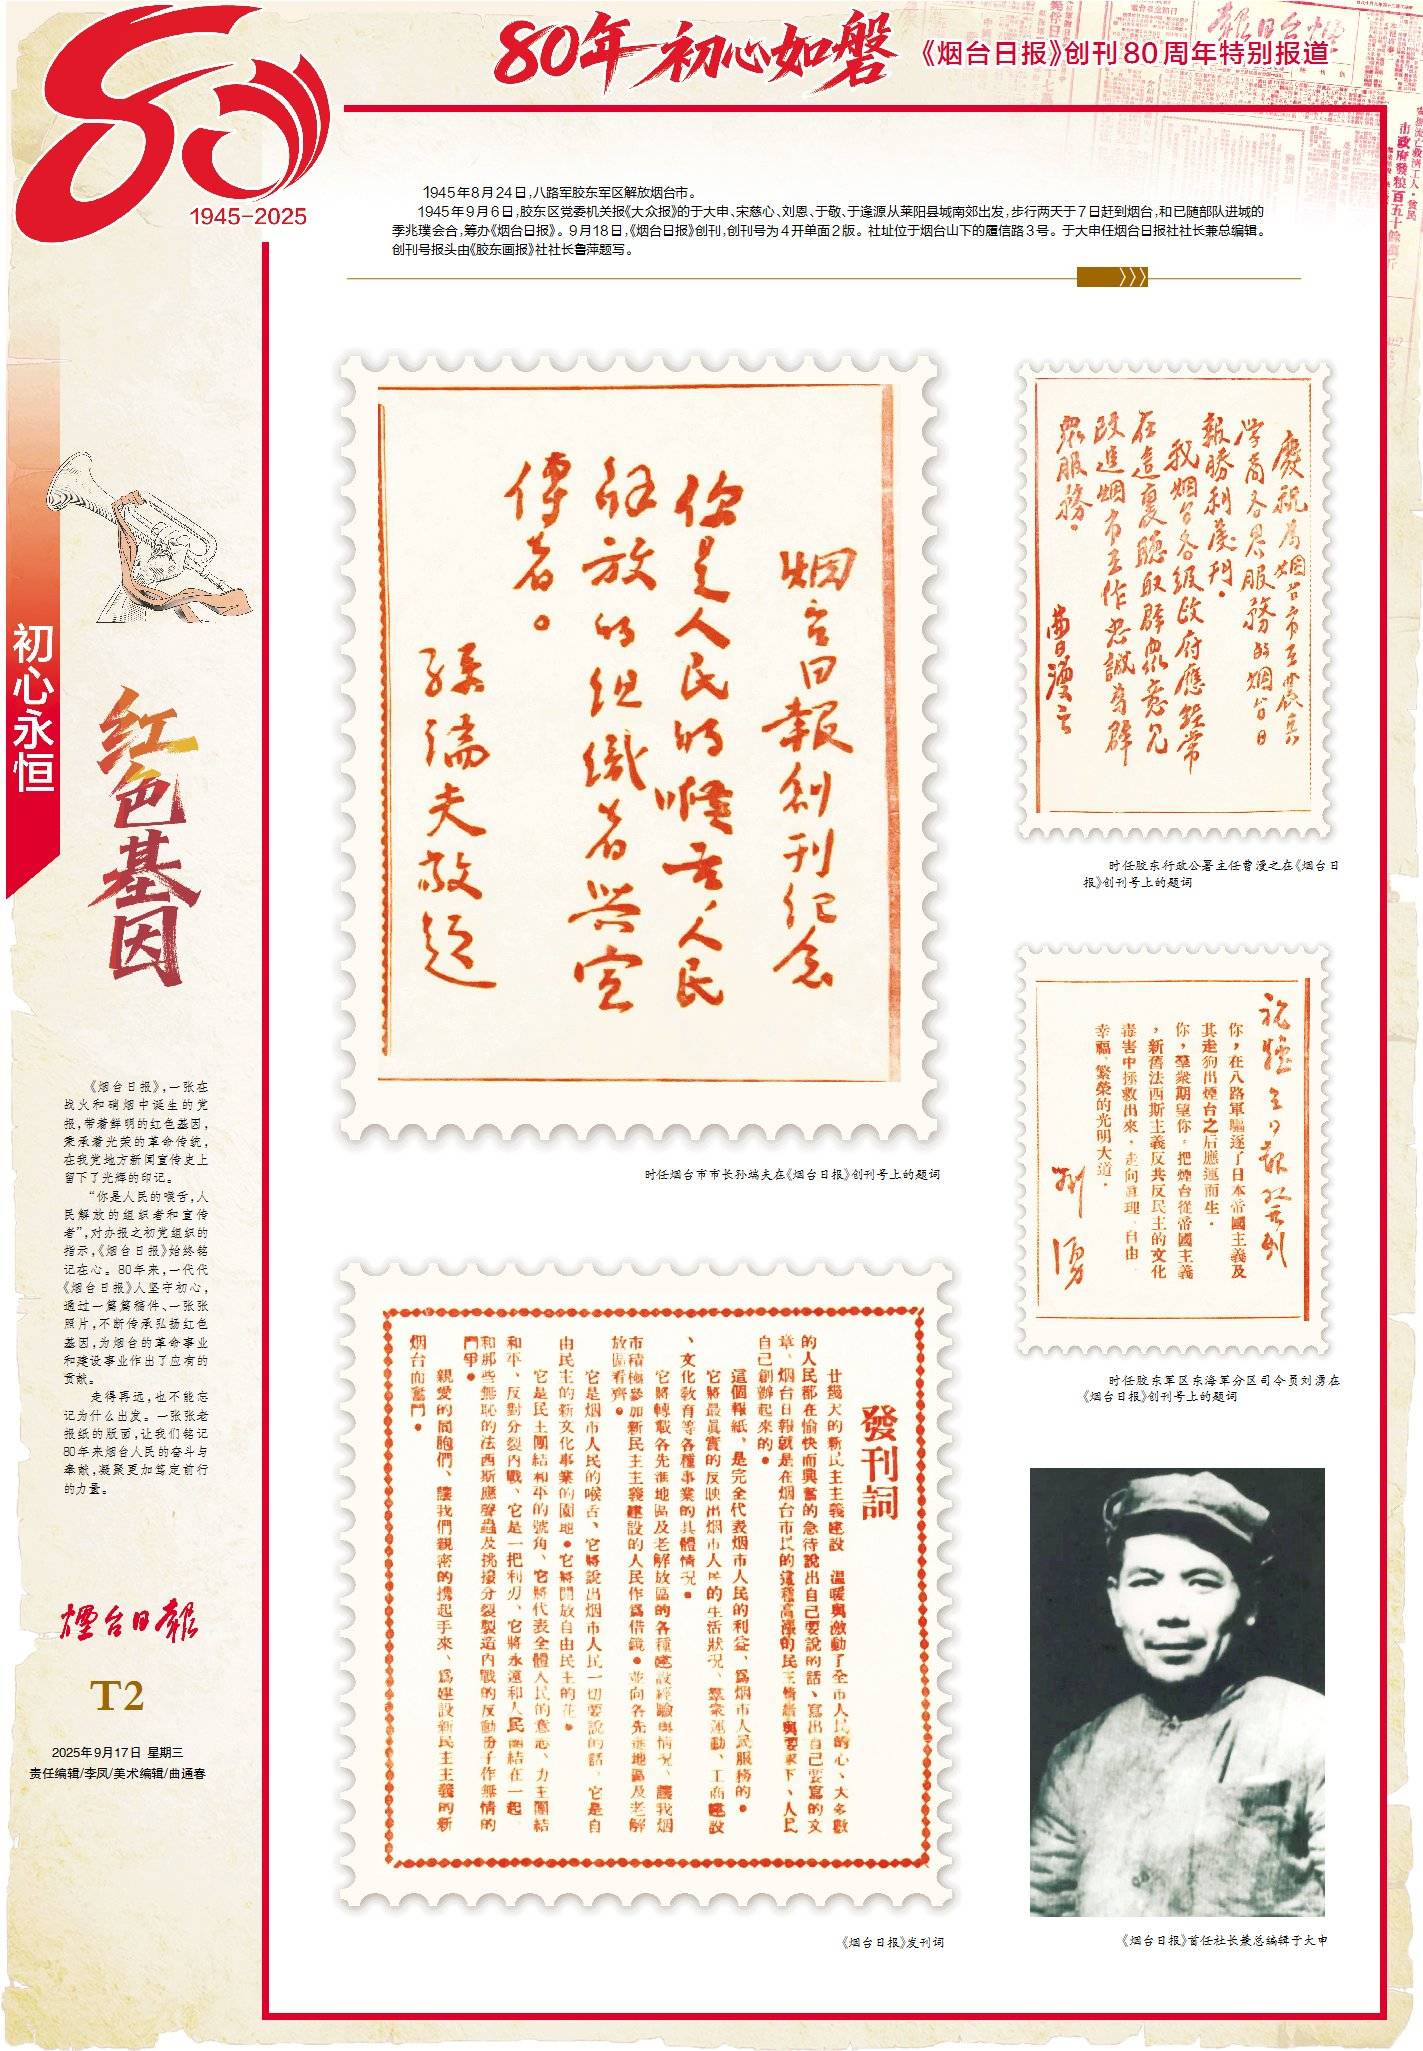 80年 初心如磐
《烟台日报》创刊80周年特别报道
1945-2025
1945年8月24日,八路军胶东军区解放烟台市。
1945年9月6日,胶东区党委机关报《大众报》的于大申、宋慈心、刘恩、于敬、于逢源从莱阳县城南郊出发,步行两天于7日赶到烟台,和已随部队进城的
季兆璞会合,筹办《烟台日报》。9月18日,《烟台日报》创刊,创刊号为4开单面2版。社址位于烟台山下的履信路3号。于大申任烟台日报社社长兼总编辑。
创刊号报头由《胶东画报》社社长鲁萍题写。
初心永恒
红色基因
《烟台日报》,一张在
战火和硝烟中诞生的党
报,带着鲜明的红色基因,
秉承着光荣的革命传统,
在我党地方新闻宣传史上
留下了光辉的印记。
“你是人民的喉舌,人
民解放的组织者和宣传
者”,对办报之初党组织的
指示,《烟台日报》始终铭
记在心。80年来,一代代
《烟台日报》人坚守初心,
通过一篇篇稿件、一张张
照片,不断传承弘扬红色
基因,为烟台的革命事业
和建设事业作出了应有的
贡献。
走得再远,也不能忘
记为什么出发。一张张老
报纸的版面,让我们铭记
80年来烟台人民的奋斗与
奉献,凝聚更加笃定前行
的力量。
煙台日報
T2
2025年9月17日 星期三
责任编辑/李凤/美术编辑/曲通春
烟台日報創刊纪念
你是人民的喉舌人民
解放的组織者与宣
傳者。
孫端夫敬题
时任烟台市市长孙端夫在《烟台日报》创刊号上的题词
慶祝為烟台市工農兵
学商各界服務的烟台日
報勝利发刊。
我烟台各级政府應經常
在這裏聽取群眾意见
改進烟市工作忠誠為群
眾服務。
曹漫之
时任胶东行政公署主任曹漫之在《烟台日
报》创刊号上的题词
祝煙台日報発刊
你,在八路軍驅逐了日本帝國主義及
其走狗出煙台之后應運而生.
你,羣衆期望你:把煙台從帝國主義
,新舊法西斯主義反共反民主的文化
毒害中拯救出來.走向真理.自由.
幸福.繁榮的光明大道.
刘湧
时任胶东军区东海军分区司令员刘湧在
《烟台日报》创刊号上的题词
發刊詞
廿幾天的新民主主義建設 溫暖與激動了全市人民的心、大多數
的人民都在愉快而興奮的急待說出自己要說的話、寫出自己要寫的文
章、烟台日報就是在烟台市民的這種高漲的民主情緒與要求下、人民
自己創辦起來的。
這個報紙、是完全代表烟市人民的利益、爲烟市人民服務的。
它將最真實的反映出烟市人民的生活狀况、羣衆運動、工商建設
、文化教育等各種事業的具體情况。
它將轉載各先進地區及老解放區的各種建設經驗與情况、讓我烟
市積極參加新民主主義建設的人民作爲借鏡。並向各先進地區及老解
放區看齊。
它是烟市人民的喉舌、它將說出烟市人民一切要說的話、它是自
由民主的新文化事業的園地。它將開放自由民主的花。
它是民主團結和平的號角、它將代表全體人民的意志、力主團結
和平、反對分裂內戰、它是一把利刃、它將永遠和人民團結在一起
和那些無恥的法西斯應聲蟲及挑撥分裂製造內戰的反動份子作無情的
鬥爭。
親愛的同胞們、讓我們親密的携起手來、爲建設新民主主義的新
烟台而奮鬥。
《烟台日报》发刊词
《烟台日报》首任社长兼总编辑于大申